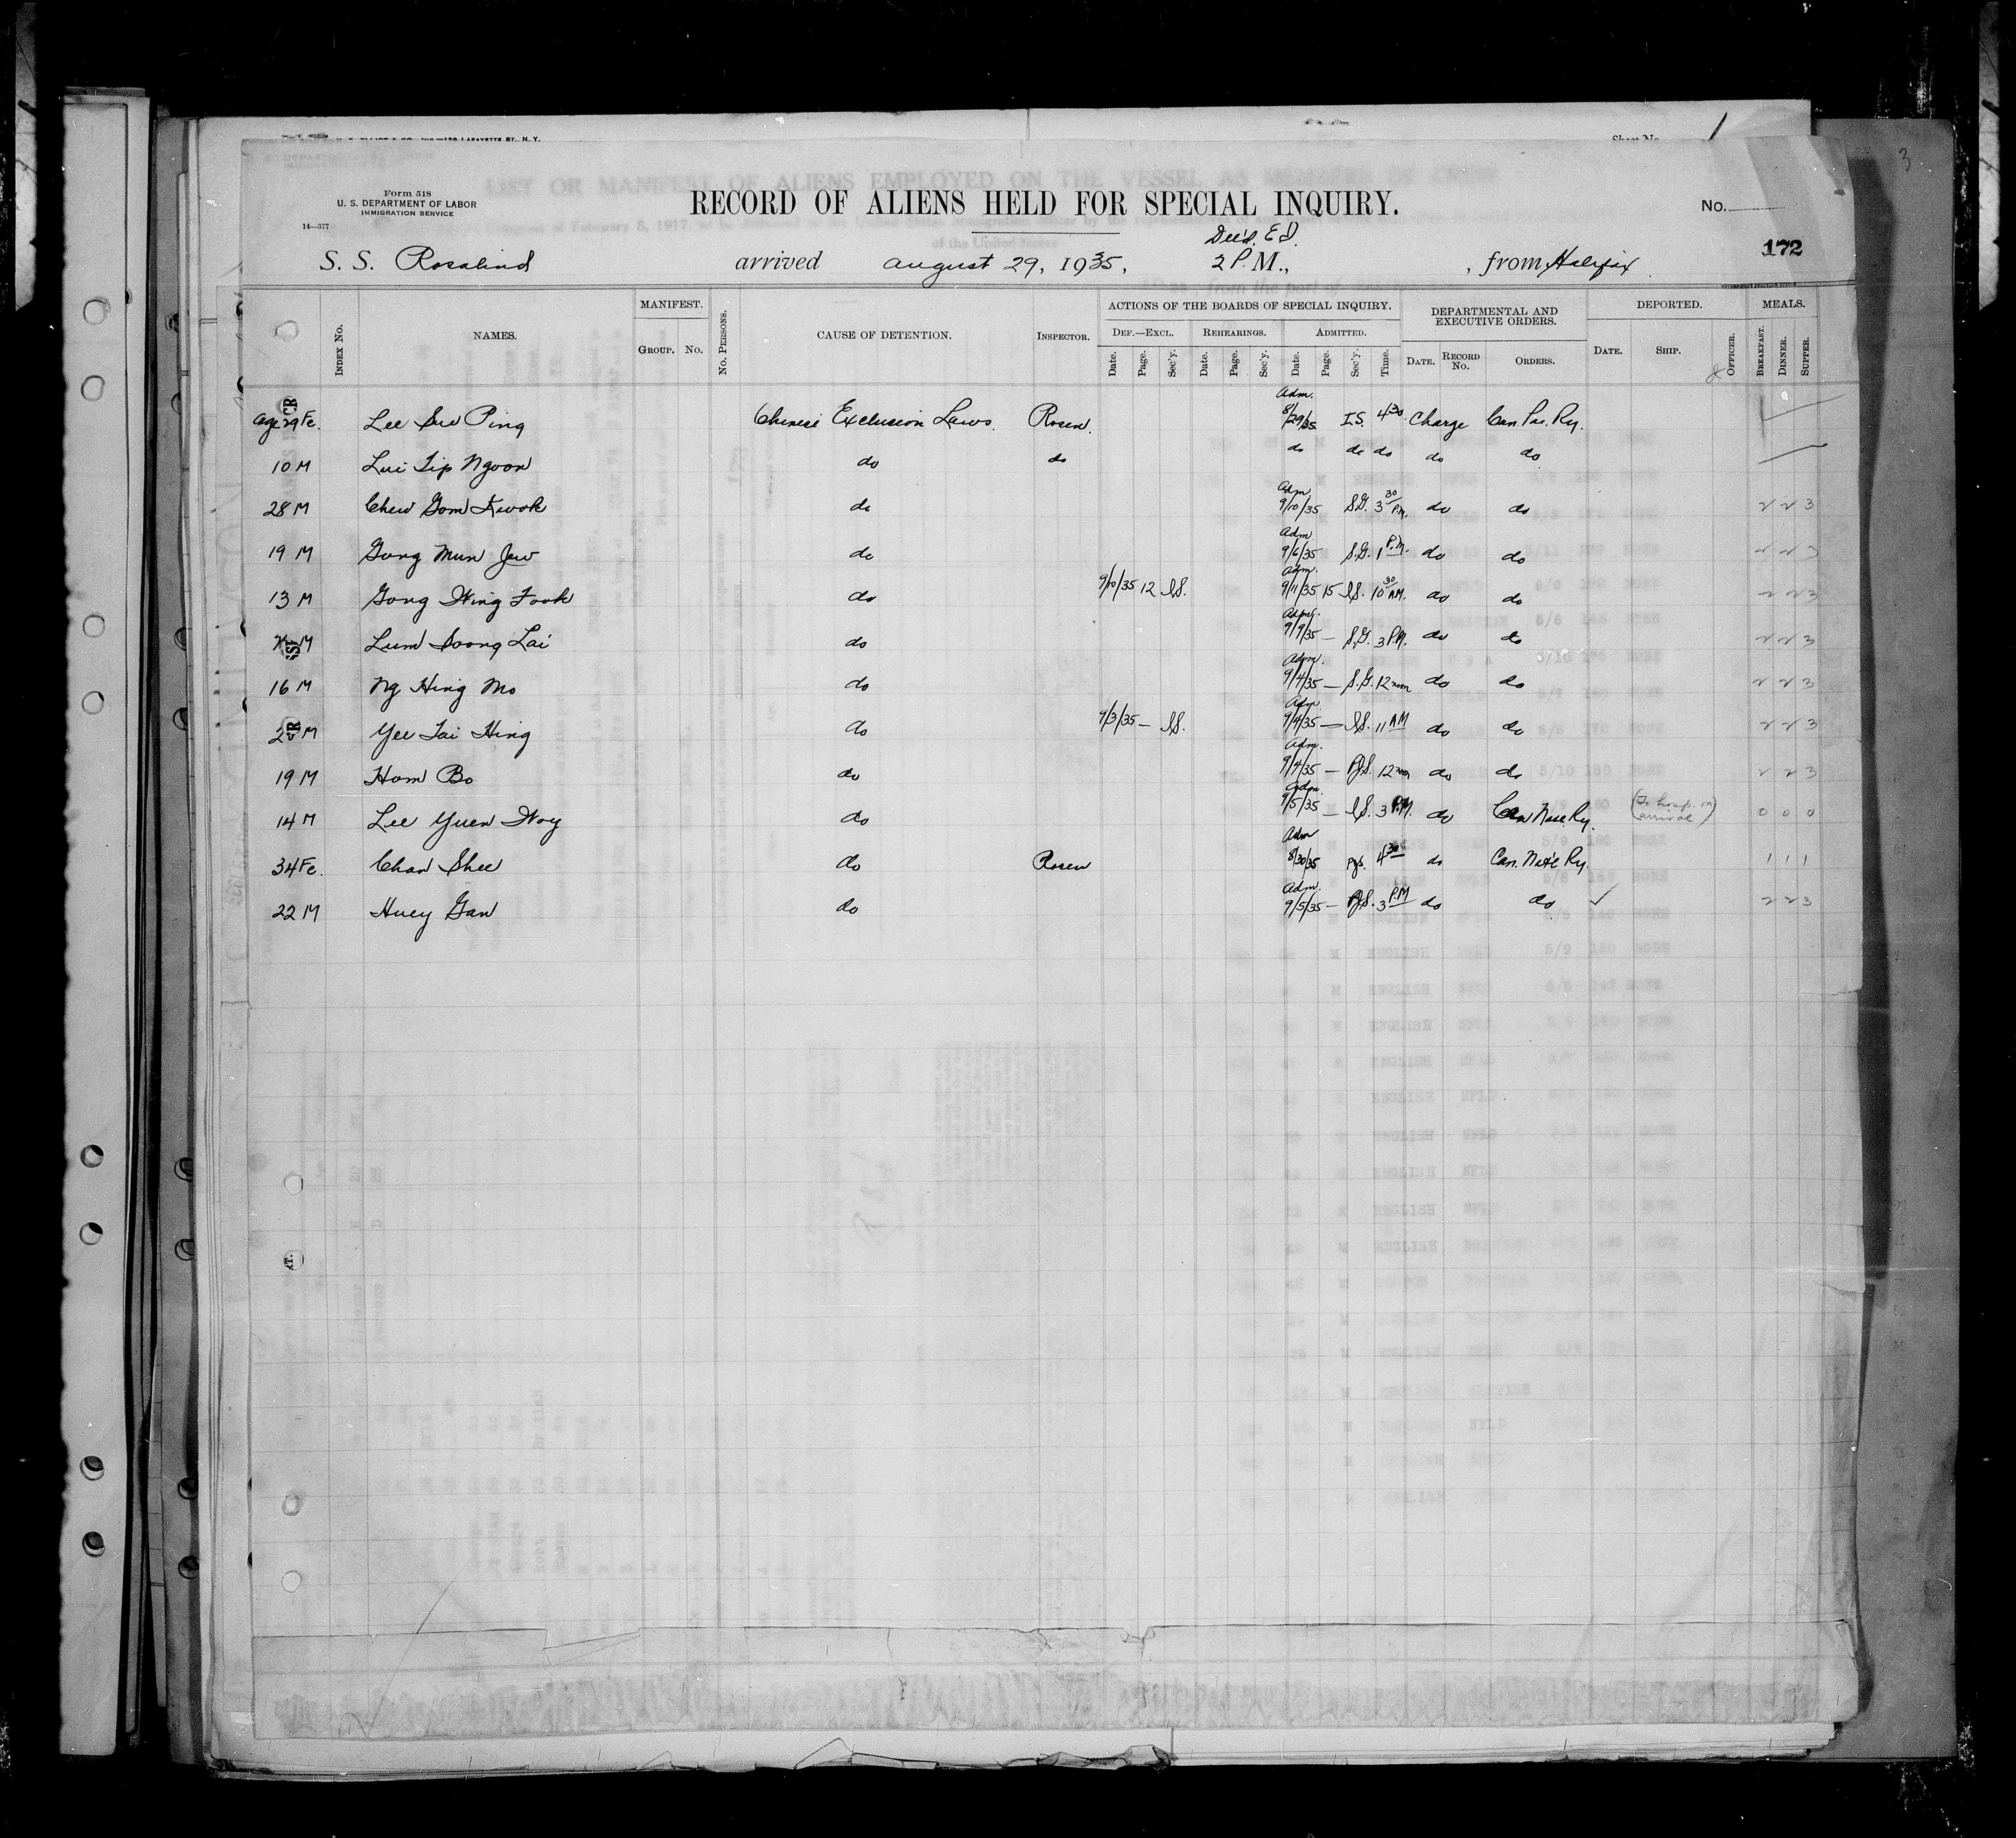 Form 518
U. S. DEPARTMENT OF LABOR
IMMIGRATION SERVICE
14—377
RECORD OF ALIENS HELD FOR SPECIAL INQUIRY.
No.
172
S. S. Rosalind arrived August 29, 1935, 2 P. M., , from Halifax
INDEX No. NAMES. MANIFEST. GROUP. No. No. PERSONS. CAUSE OF DETENTION. INSPECTOR. ACTIONS OF THE BOARDS OF SPECIAL INQUIRY. DEPARTMENTAL AND EXECUTIVE ORDERS. DEPORTED. MEALS.
DEF.—EXCL. REHEARINGS. ADMITTED.
Date. Page. Sec'y. Date. Page. Sec'y. Date. Page. Sec'y. Time. DATE. RECORD No. ORDERS. DATE. SHIP. OFFICER. BREAKFAST. DINNER. SUPPER.
age 29 Fe. Lee Sue Ping Chinese Exclusion Laws. Rosen. Adm. 8/29/35 I.S. 4 30 Charge Can. Pac. Ry.
10 M Lui Tip Ngoon do do do do do do do
28 M Chew Gom Kwok do Adm 9/10/35 S.G. 3 30 P.M. do do 2 2 3
19 M Gong Mun Jew do Adm 9/6/35 S.G. 1 P.M. do do 2 2 3
13 M Gong Wing Fook do 9/10/35 12 I.S. Adm. 9/11/35 15 I.S. 10 30 A.M. do do 2 2 3
M Lum Soong Lai do 9/9/35 — S.G. 3 P.M. do do 2 2 3
16 M Ng Hing Mo do Adm. 9/4/35 — S.G. 12 noon do do 2 2 3
M Yee Tai Hing do 9/3/35 — I.S. Adm. 9/4/35 — I.S. 11 AM do do 2 2 3
19 M Hom Bo do Adm. 9/4/35 — 12 noon do do 2 2 3
14 M Lee Yuen Woy do Adm. 9/5/35 — I.S. 3 P.M. do Can Nat. Ry. (To hosp. on arrival) 0 0 0
34 Fe. Chan Shee do Rosen Adm 8/30/35 4 30 do Can. Nat'l Ry. 1 1 1
22 M Huey Gan do Adm. 9/5/35 — 3 P.M do do ✓ 2 2 3